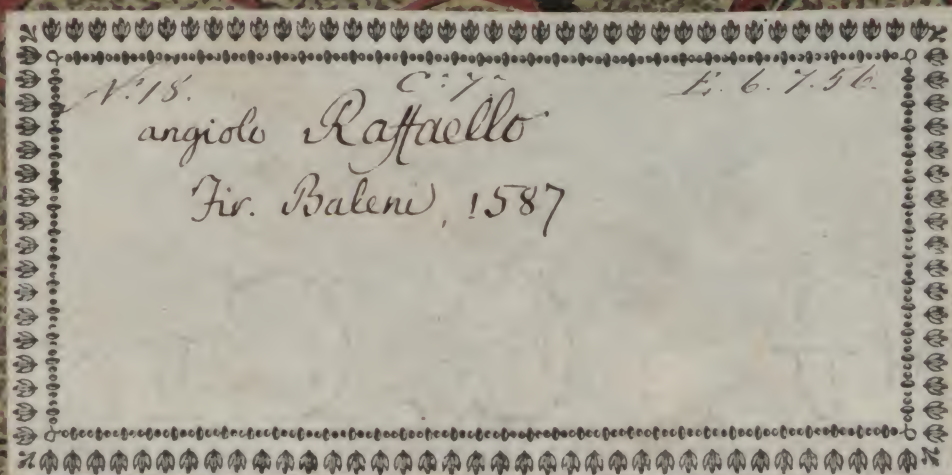 N. 18. C. 7. E. 6. 7. 56.
angiolo Raffaello
Fir. Baleni, 1587